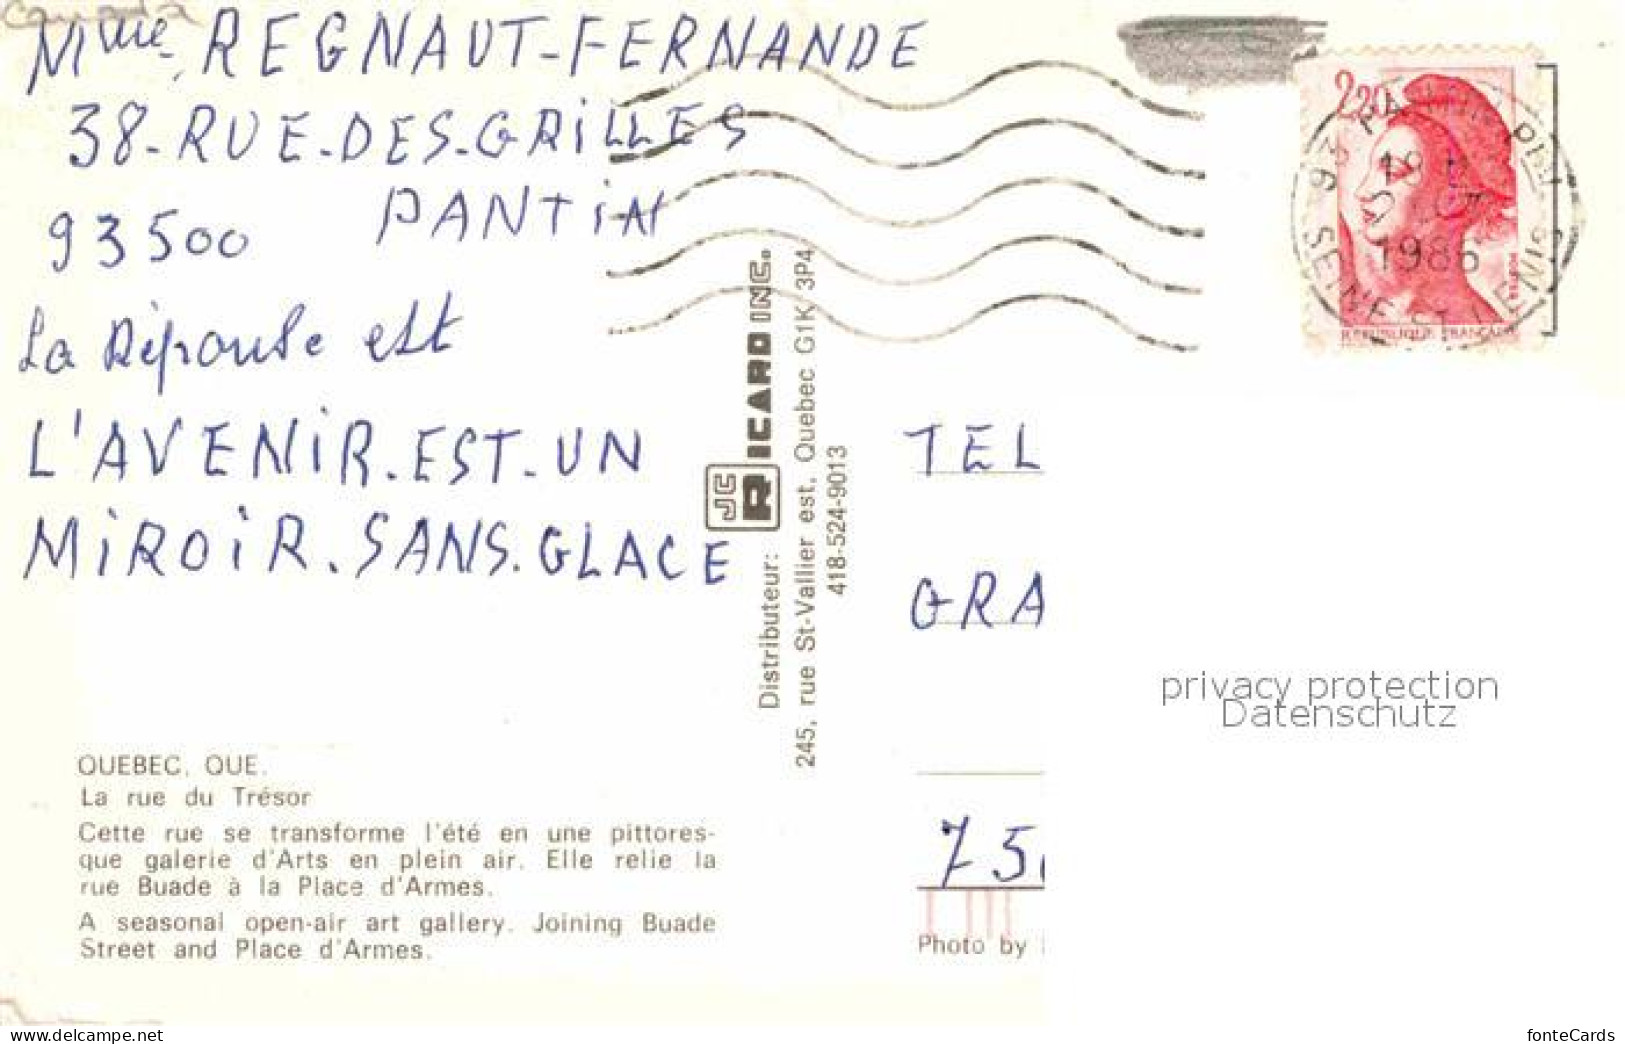 Canada
Mme REGNAUT-FERNANDE
38-RUE-DES-GRILLES
93500 PANTIN
La Réponse est
L'AVENIR.EST.UN
MIROIR.SANS.GLACE
QUEBEC, QUE.
La rue du Trésor
Cette rue se transforme l'été en une pittores-
que galerie d'Arts en plein air. Elle relie la
rue Buade à la Place d'Armes.
A seasonal open-air art gallery. Joining Buade
Street and Place d'Armes.
Distributeur: JC R RICARD INC.
245, rue St-Vallier est, Quebec G1K 3P4
418-524-9013
2,20
REPUBLIQUE FRANÇAISE
93 PANTIN PPAL
18
1986
SEINE ST DENIS
TEL
GRA
75
Photo by
privacy protection
Datenschutz
www.delcampe.net
fonteCards